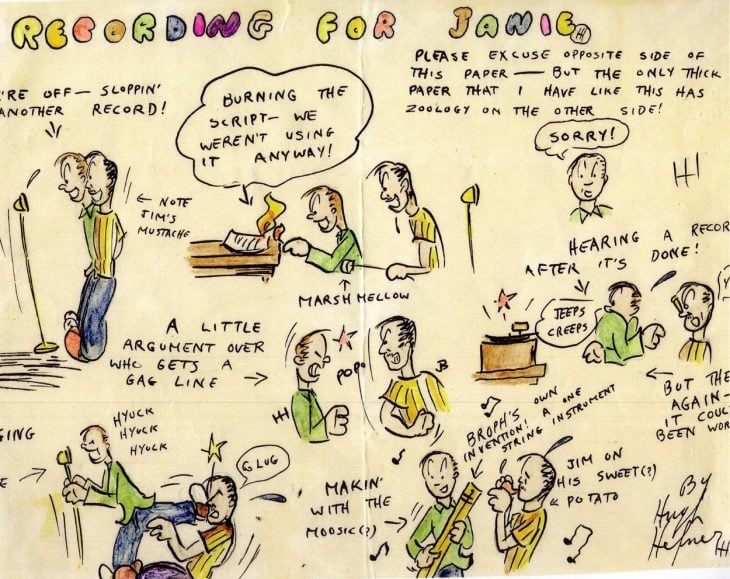 RECORDING FOR JANIE
HH
'RE OFF — SLOPPIN'
ANOTHER RECORD!
BURNING THE
SCRIPT — WE
WEREN'T USING
IT ANYWAY!
PLEASE EXCUSE OPPOSITE SIDE OF
THIS PAPER — BUT THE ONLY THICK
PAPER THAT I HAVE LIKE THIS HAS
ZOOLOGY ON THE OTHER SIDE!
SORRY!
H!
← NOTE
JIM'S
MUSTACHE
MARSHMELLOW
HEARING A RECOR
AFTER IT'S DONE!
JEEPS
CREEPS
A LITTLE
ARGUMENT OVER
WHO GETS A
GAG LINE →
POPO
HH
B
BUT THE
AGAIN —
IT COUL
BEEN WOR
GING
HYUCK
HYUCK
HYUCK
GLUG
MAKIN'
WITH THE
MOOSIC(?)
BROPH'S OWN
INVENTION! A ONE
STRING INSTRUMENT
JIM ON
HIS SWEET(?)
← POTATO
By
Hugh
Hefner
HH